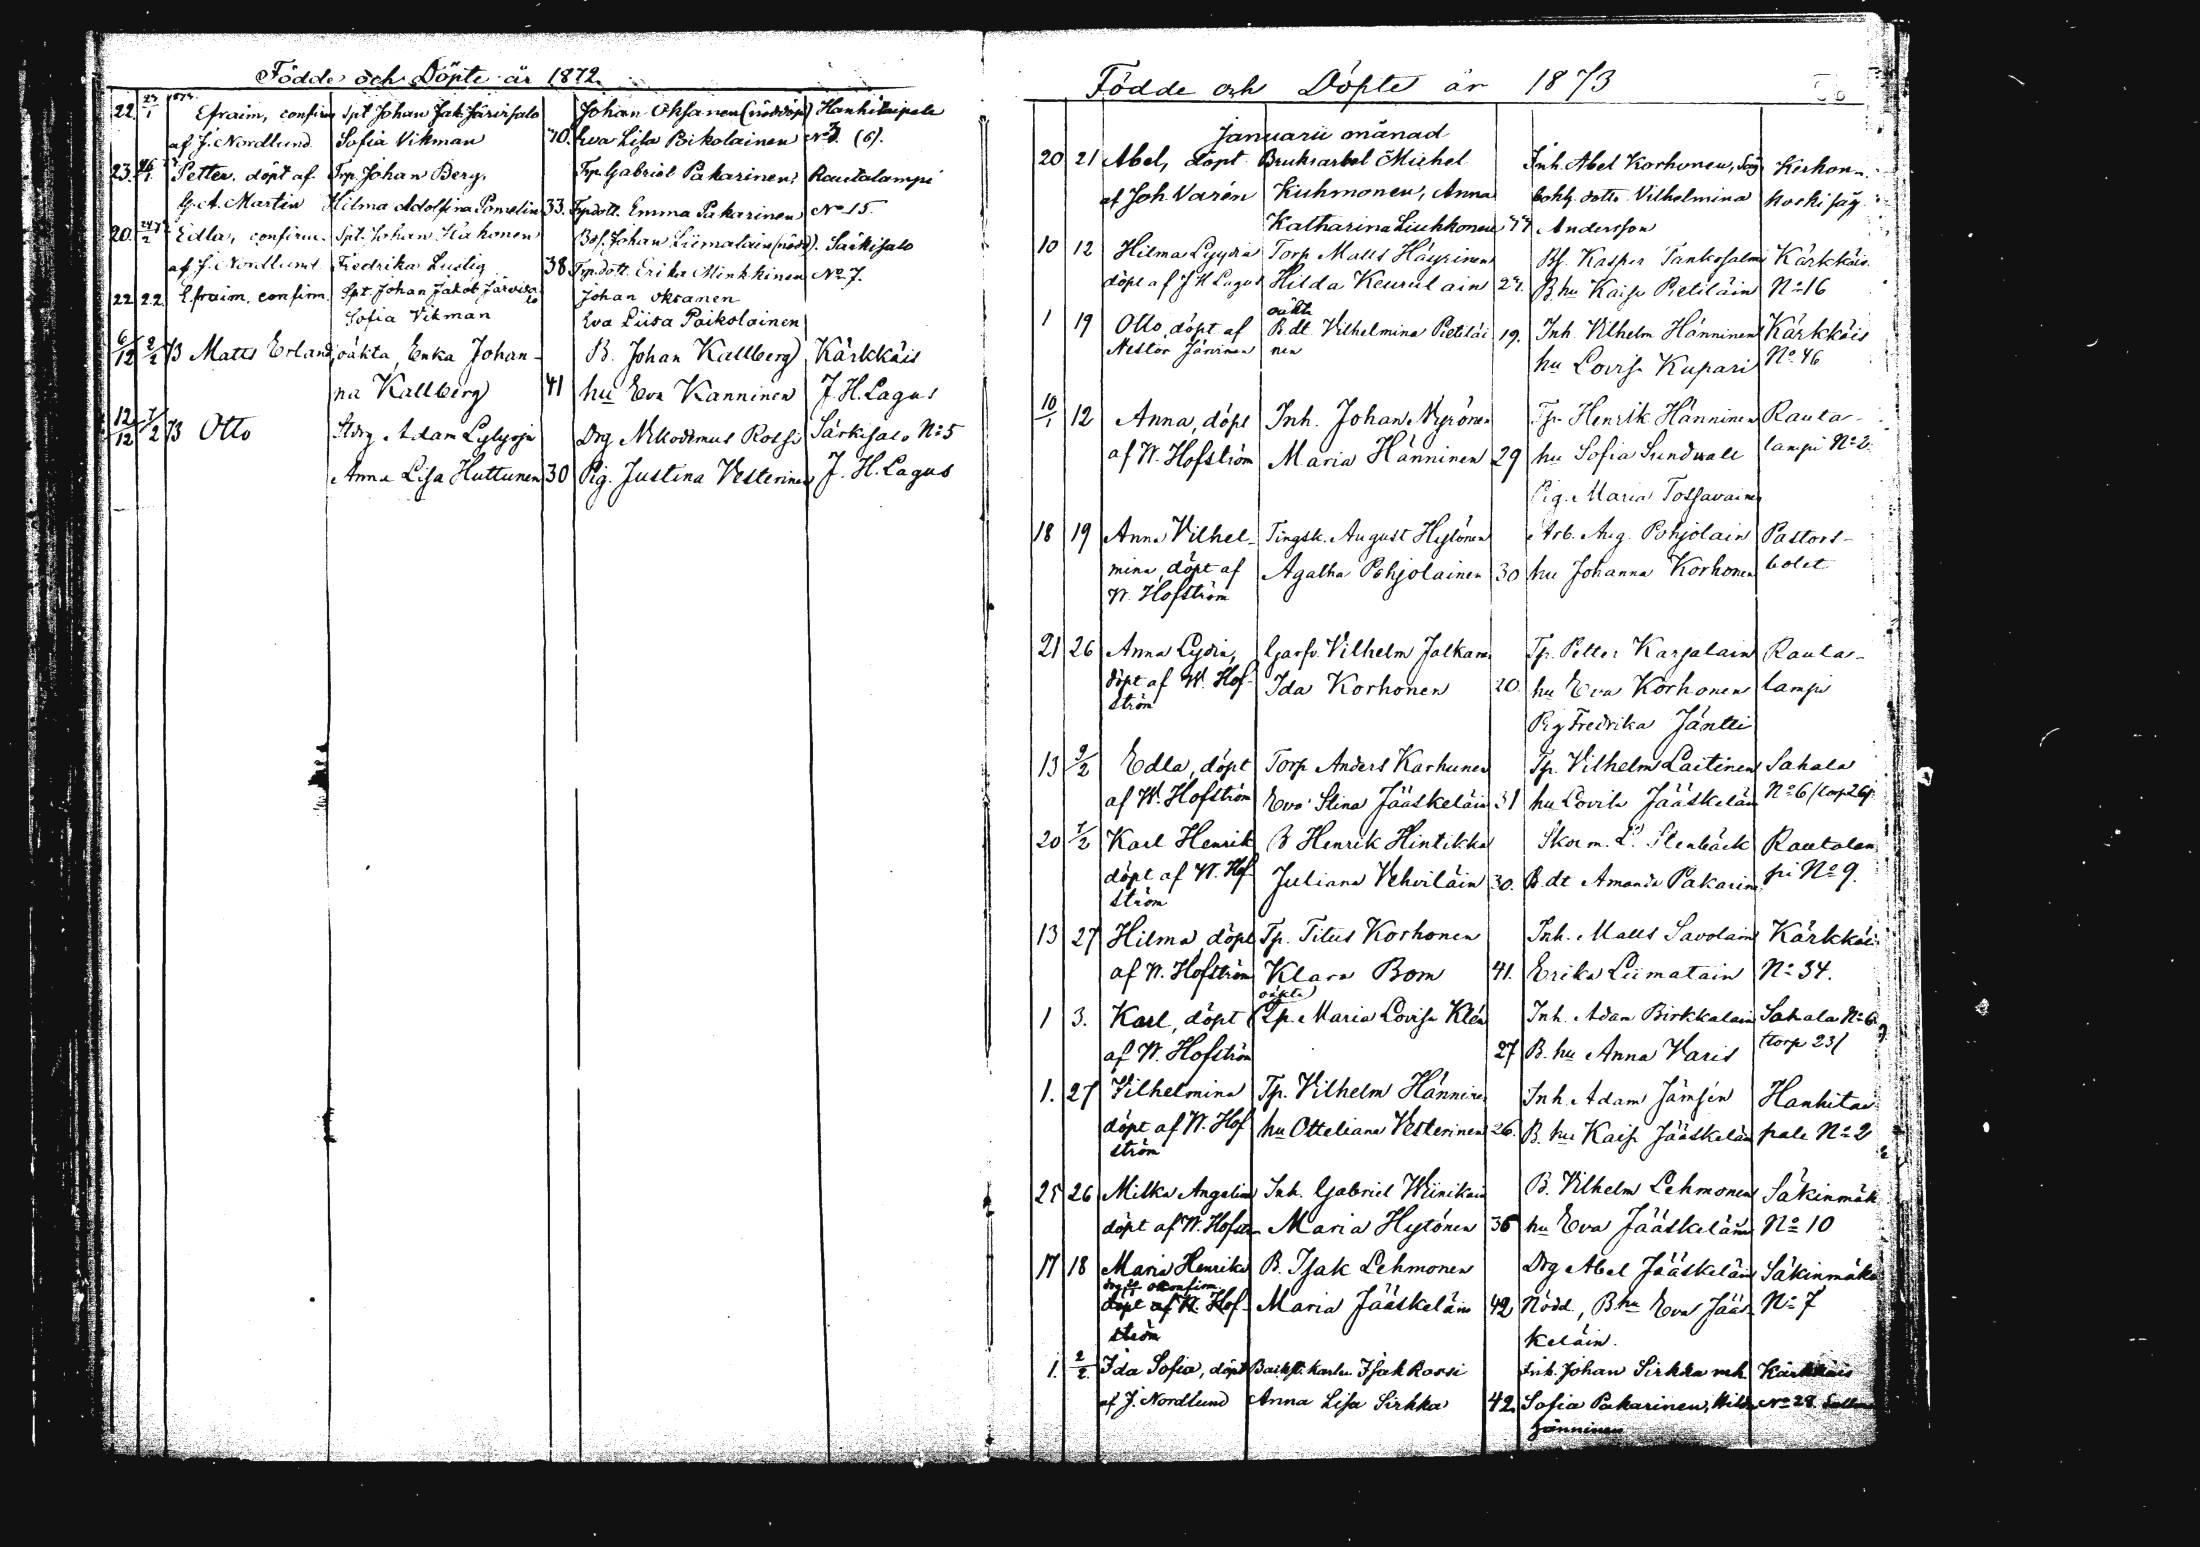 Födde och Döpte år 1872
22. 23/1 1873. Efraim, confirm Spt Johan Jak Järvisalo Johan Oksanen (nöddöpt) Hankitaipale
af J. Nordlund Sofia Vikman 40. Eva Lisa Poikolainen No 3 (6).
23. 26/1 Petter, döpt af Torp. Johan Berg, Trp. Gabriel Pakarinen, Rautalampi
G. A. Martin Hilma Adolfina Pomelin 33. Trpdott. Emma Pakarinen No 15.
20. 24/2 Edla, confirm. Spt. Johan Kakonen Bds. Johan Liimatain (nödd). Särkisalo
af J. Nordlund Fredrika Lustig 38 Trpdott. Erika Minkkinen No 7.
22 22 Efraim, confirm. Spt Johan Jakob Järvisalo Johan oksanen
Sofia Vikman Eva Liisa Poikolainen
6/12 2/2 73 Matts Erland, oäkta, Erika Johan- B. Johan Kallberg Kärkkäis
na Kallberg 41 hu Eva Kanninen J. H. Lagus
12/12 7/2 73 Otto Stdrg Adam Lylyoja Drg Nikodemus Rossi Särkisalo No 5
Anna Lisa Huttunen 30 Pig. Justina Vesterinen J. H. Lagus
Födde och Döpte år 1873
Januarii månad
20 21 Abel, döpt Bruksarbet Michel Inh. Abel Korhonen, Såg Kerkon-
af Joh. Varén Kuhmonen, Anna bokh. dotter Vilhelmina koski såg.
Katharina Liukkonen 44 Andersson
10 12 Hilma Lyydia Torp Matts Häyrinen Bf. Kasper Tankosalmi Kärkkäis
döpt af J H Lagus Hilda Keurulain 27. B hu Kaisa Pietiläin No 16
oäkta
1 19 Otto, döpt af B. dt. Vilhelmina Pietiläi 19. Inh. Vilhelm Hänninen Kärkkäis
Nestor Järvinen nen hu Lovisa Kupari No 46
10/1 12 Anna, döpt Inh. Johan Nyrönen Tp. Henrik Hänninen Rauta-
af W. Hofström Maria Hänninen 29 hu Sofia Sundvall lampi No 2.
Pig. Maria Tossavainen
18 19 Anna Vilhel- Tingsk. August Hytönen Arb. Aug. Pohjolain Pastors-
mina, döpt af Agatha Pohjolainen 30 hu Johanna Korhonen bolet
W. Hofström
21 26 Anna Lydia, Garfv. Vilhelm Jalkanen Tp. Petter Karjalain Rauta-
döpt af W. Hof- Ida Korhonen 20. hu Eva Korhonen lampi
ström
Pig Fredrika Jäntti
13 9/2 Edla, döpt Torp Anders Karhunen Tp. Vilhelm Laitinen Sahala
af W. Hofström Eva Stina Jääskeläin 31 hu Lovisa Jääskeläin No 6 (torp 26)
20 7/2 Karl Henrik B Henrik Hintikka Skom. L. Stenbäck Rautalam
döpt af W. Hof- Juliana Vehviläin 30. B. dt Amanda Pakarin pi No 9.
ström
13 27 Hilma, döpt Tp. Titus Korhonen Inh. Matts Savolain Kärkkäis
af W. Hofström Klara Bom 41. Erika Liimatain No 34.
oäkta
1 3. Karl, döpt Tp. Maria Lovisa Klén Inh. Adam Birkkalain Sahala No 6
af W. Hofström 27 B. hu Anna Varis (torp 23)
1. 27 Vilhelmina Tp. Vilhelm Hänninen Inh. Adam Jämsén Hankitai-
döpt af W. Hof hu Otteliana Vesterinen 26. B. hu Kaisa Jääskeläin pale No 2
ström
25 26 Milka Angelina Inh. Gabriel Wiinikain B. Vilhelm Lehmonen Säkinmäk
döpt af W. Hofström Maria Hytönen 36 hu Eva Jääskeläin No 10
17 18 Maria Henrika B. Isak Lehmonen Drg Abel Jääskeläin Säkinmäki
döpt af W. Hof- Maria Jääskeläin 42 Nödd., B hu Eva Jääs- No 7
ström keläin.
1. 2/2 Ida Sofia, döpt Isak Rossi Inh. Johan Sirkka mh. Kärkkäis
af J. Nordlund Anna Lisa Sirkka 42 Sofia Pakarinen, No 28
Hänninen